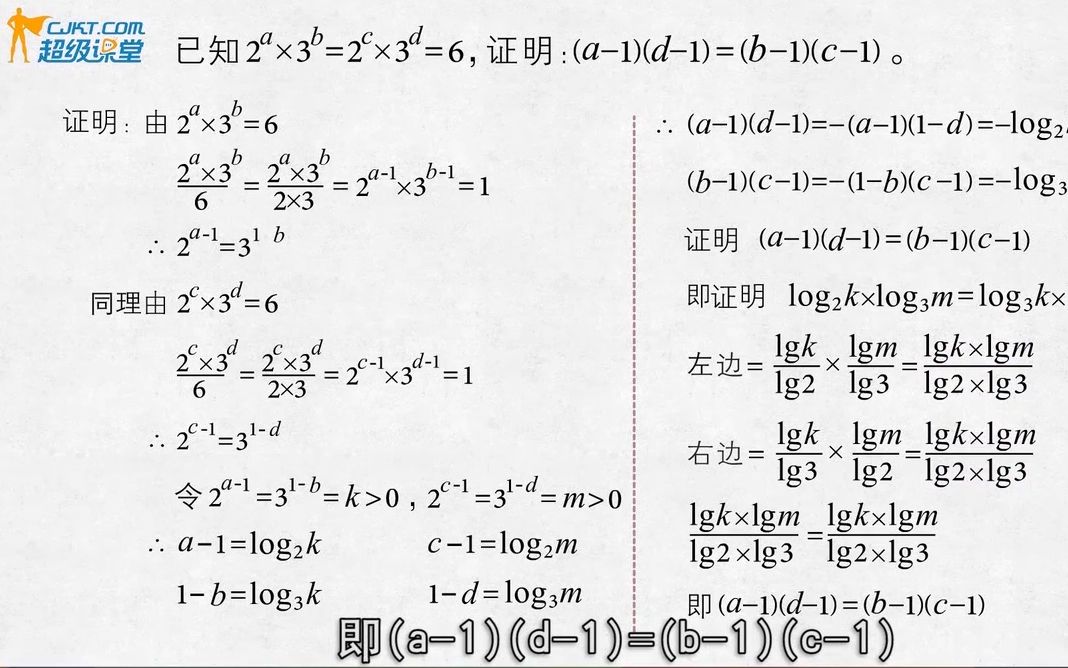 CJKT.COM
超级课堂
已知 2^a×3^b=2^c×3^d=6, 证明:(a-1)(d-1)=(b-1)(c-1)。
证明: 由 2^a×3^b=6
(2^a×3^b)/6 = (2^a×3^b)/(2×3) = 2^(a-1)×3^(b-1)=1
∴ 2^(a-1)=3^(1 b)
同理由 2^c×3^d=6
(2^c×3^d)/6 = (2^c×3^d)/(2×3) = 2^(c-1)×3^(d-1)=1
∴ 2^(c-1)=3^(1-d)
令 2^(a-1)=3^(1-b)=k>0 , 2^(c-1)=3^(1-d)=m>0
∴ a-1=log₂k c-1=log₂m
1-b=log₃k 1-d=log₃m
∴ (a-1)(d-1)=-(a-1)(1-d)=-log₂
(b-1)(c-1)=-(1-b)(c-1)=-log₃
证明 (a-1)(d-1)=(b-1)(c-1)
即证明 log₂k×log₃m=log₃k×
左边= lgk/lg2 × lgm/lg3 = (lgk×lgm)/(lg2×lg3)
右边= lgk/lg3 × lgm/lg2 = (lgk×lgm)/(lg2×lg3)
(lgk×lgm)/(lg2×lg3) = (lgk×lgm)/(lg2×lg3)
即 (a-1)(d-1)=(b-1)(c-1)
即(a-1)(d-1)=(b-1)(c-1)